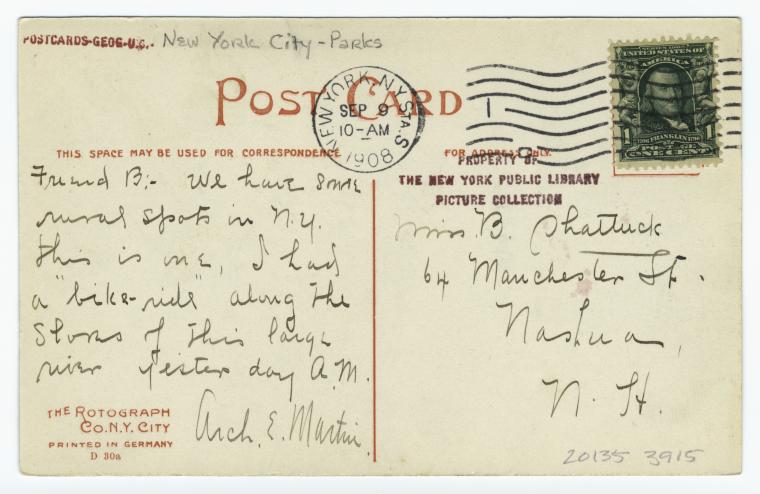 POSTCARDS-GEOG-U.S.- New York City - Parks
POST CARD
NEW YORK, N.Y. STA. S.
SEP 9
10-AM
1908
1
SERIES 1902
UNITED STATES OF
AMERICA
1706 FRANKLIN 1790
POSTAGE
1 ONE CENT 1
THIS SPACE MAY BE USED FOR CORRESPONDENCE
FOR ADDRESS ONLY.
PROPERTY OF
THE NEW YORK PUBLIC LIBRARY
PICTURE COLLECTION
Friend B;- We have some
rural spots in N.Y.
this is one, I had
a "bike-ride" along the
Shores of this large
river yesterday A.M.
Arch. E. Martin.
Miss B. Shattuck
64 Manchester St.
Nashua,
N. H.
THE ROTOGRAPH
CO. N.Y. CITY
PRINTED IN GERMANY
D 30a
20135 3915